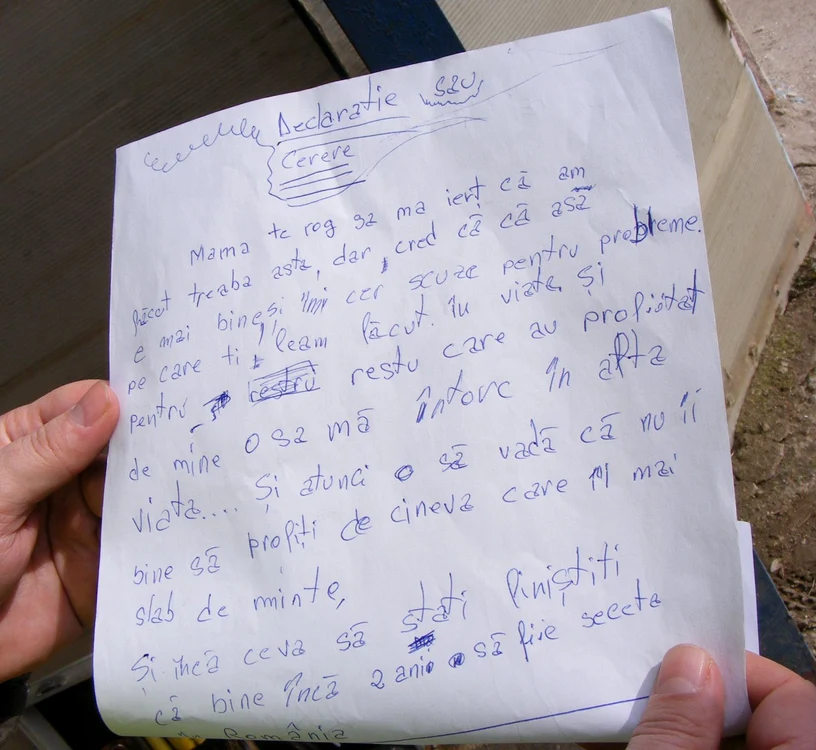 Declaratie sau
Cerere
Mama te rog sa ma ierț că am
făcut treaba asta, dar, cred că că asă
e mai bine și îmi cer scuze pentru probleme.
pe care ti leam făcut. În viata și
pentru restu care au profiitat
de mine o sa mă întorc în alta
viata.... Și atunci o să vadă că nu îi
bine să profiți de cineva care îi mai
slab de minte,
Și încă ceva să stati liniștiti
că bine încă 2 ani o să fiie seceta
în România